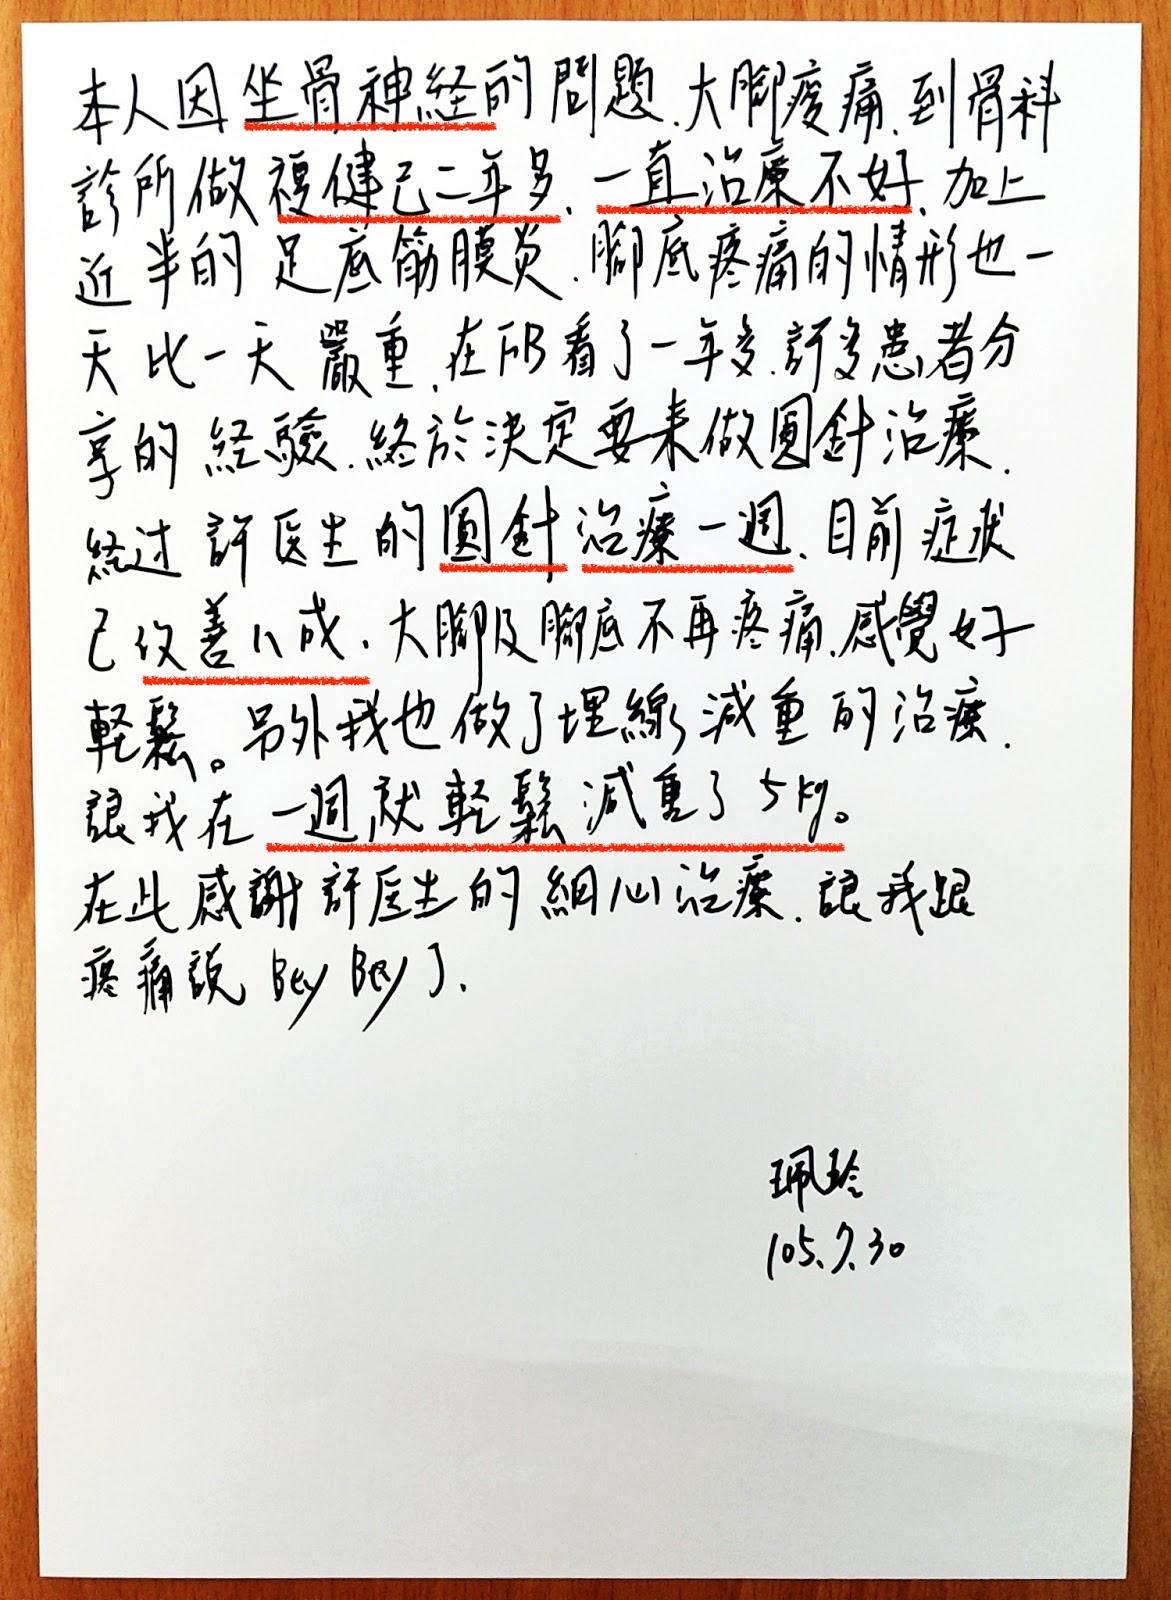 本人因坐骨神経的問題.大腳痠痛.到骨科
診所做復健已二年多.一直治療不好.加上
近半的足底筋膜炎.腳底疼痛的情形也一
天比一天嚴重.在FB看了一年多.許多患者分
享的経驗.終於決定要來做圓針治療.
経过許医生的圓針治療一週.目前症狀
已改善八成.大腳及腳底不再疼痛.感覺好
輕鬆。另外我也做了埋線減重的治療.
讓我在一週就輕鬆減重了5kg。
在此感謝許医生的細心治療.讓我跟
疼痛說Bey Bey了.
珮玲
105.7.30